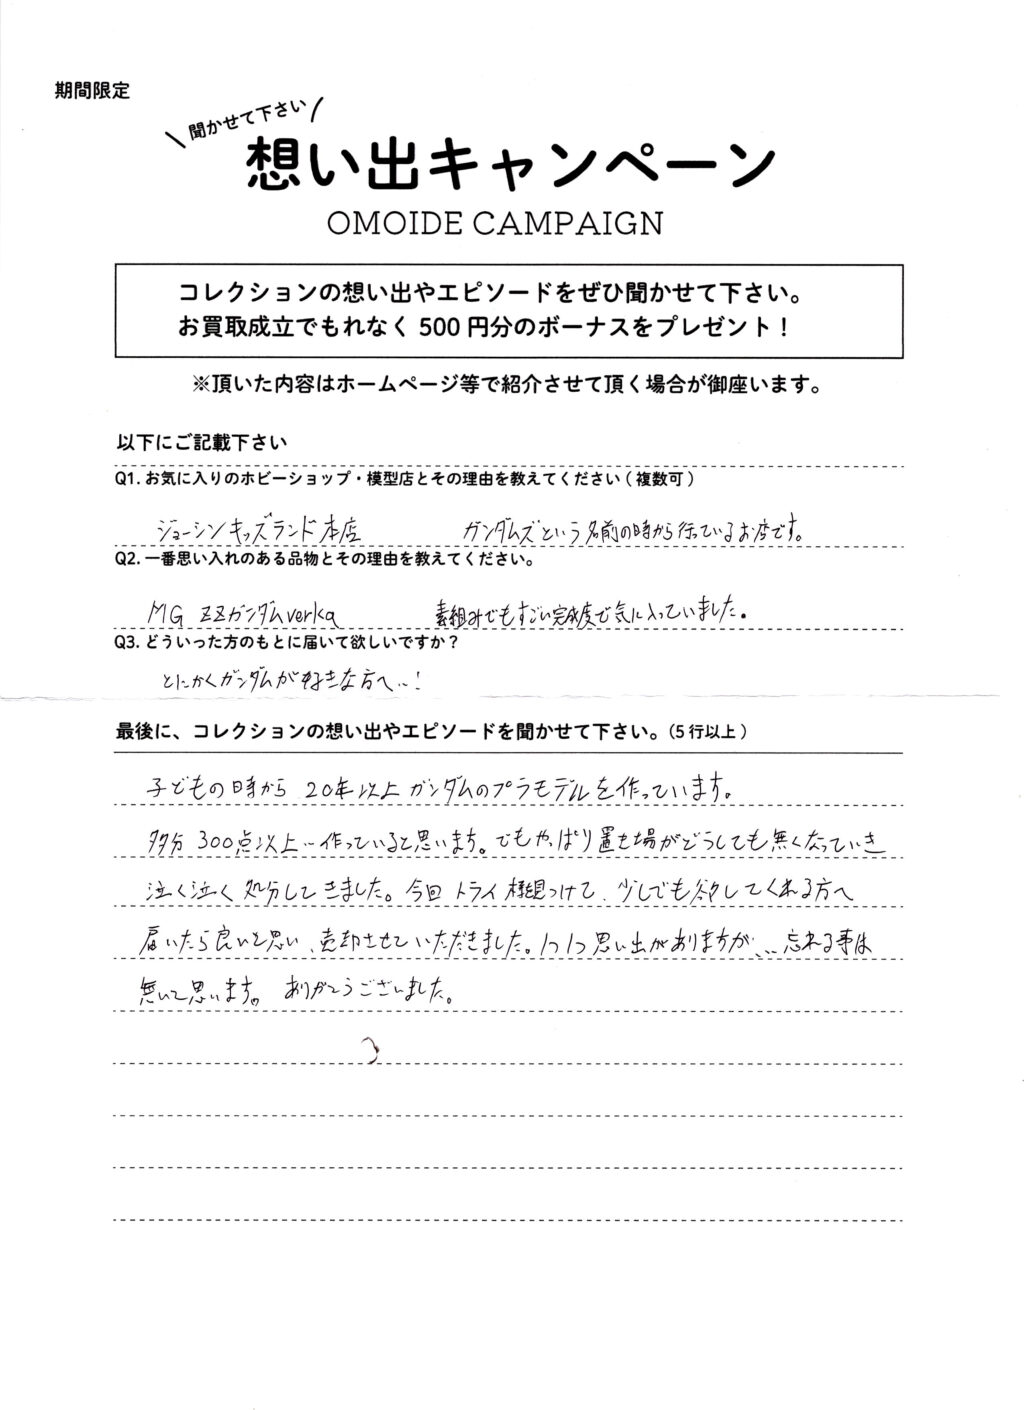 期間限定
聞かせて下さい
想い出キャンペーン
OMOIDE CAMPAIGN
コレクションの想い出やエピソードをぜひ聞かせて下さい。
お買取成立でもれなく500円分のボーナスをプレゼント！
※頂いた内容はホームページ等で紹介させて頂く場合が御座います。
以下にご記載下さい
Q1. お気に入りのホビーショップ・模型店とその理由を教えてください(複数可)
ジョーシンキッズランド本店 ガンダムズという名前の時から行っているお店です。
Q2. 一番思い入れのある品物とその理由を教えてください。
MG ZZガンダムverka 素組みでもすごい完成度で気に入っていました。
Q3. どういった方のもとに届いて欲しいですか？
とにかくガンダムが好きな方へ…！
最後に、コレクションの想い出やエピソードを聞かせて下さい。(5行以上)
子どもの時から 20年以上ガンダムのプラモデルを作っています。
多分 300点以上…作っていると思います。でもやっぱり置き場がどうしても無くなっていき
泣く泣く処分してきました。今回トライ 見つけて、少しでも欲してくれる方へ
届いたら良いと思い、売却させていただきました。1つ1つ思い出がありますが、…忘れる事は
無いと思います。 ありがとうございました。